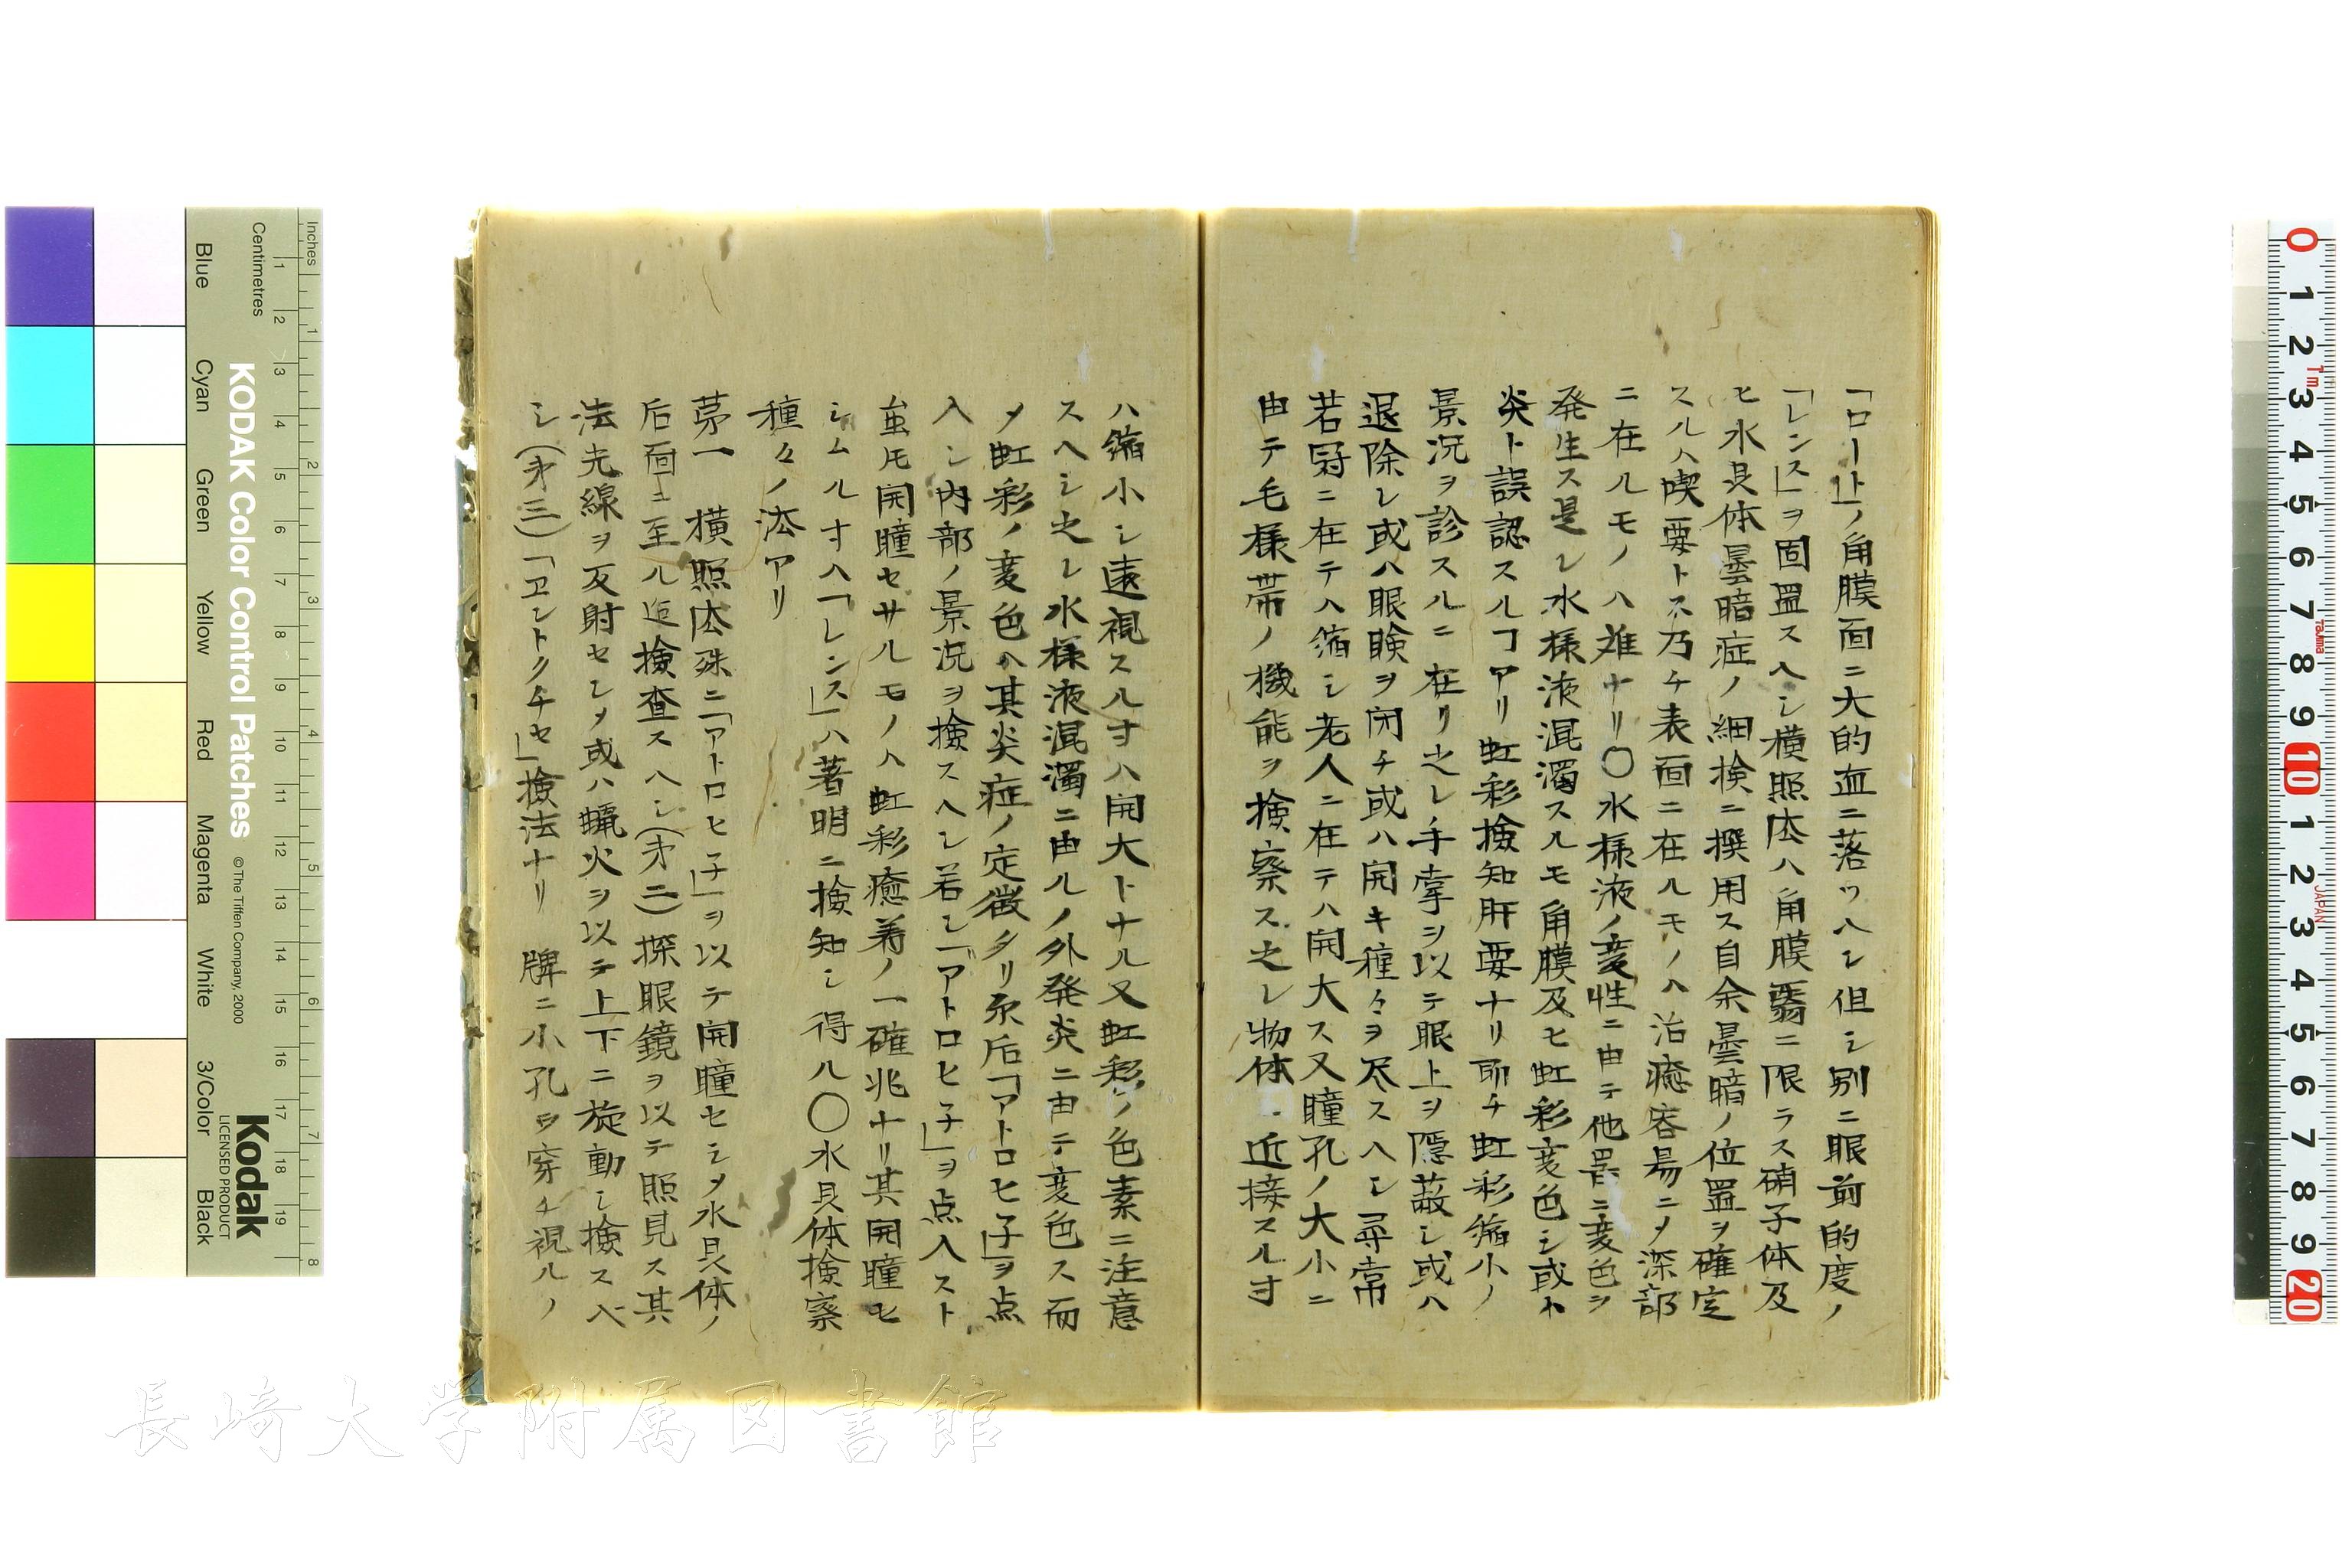 「ロート」ノ角膜面ニ大的血ニ落ツヘシ但シ別ニ眼前的度ノ
「レンス」ヲ固置スヘシ横照法ハ角膜翳ニ限ラス硝子体及
ヒ水晶体曇暗症ノ細検ニ撰用ス自余曇暗ノ位置ヲ確定
スルハ喫要トス乃チ表面ニ在ルモノハ治癒容易ニメ深部
ニ在ルモノハ難ナリ〇水様液ノ変性ニ由テ他器ニ変色ヲ
発生ス是レ水様液混濁スルモ角膜及ヒ虹彩変色シ或ハ
炎ト誤認スルヿアリ虹彩検知肝要ナリ即チ虹彩縮小ノ
景況ヲ診スルニ在リ之レ手掌ヲ以テ眼上ヲ隠蔽シ或ハ
退除シ或ハ眼瞼ヲ閉チ或ハ開キ種々ヲ尽スヘシ尋常
若冠ニ在テハ縮シ老人ニ在テハ開大ス又瞳孔ノ大小ニ
由テ毛様帯ノ機能ヲ検察ス之レ物体近接スル寸
ハ縮小シ遠視スル寸ハ開大トナル又虹彩ノ色素ニ注意
スヘシ之レ水様液混濁ニ由ルノ外発炎ニ由テ変色ス而
メ虹彩ノ変色ハ其炎症ノ定徴タリ尓后「アトロヒ子」ヲ点
入シ内部ノ景況ヲ検スヘシ若シ「アトロヒ子」ヲ点入スト
虽𪜈開瞳セサルモノハ虹彩癒着ノ一確兆ナリ其開瞳セ
シムル寸ハ「レンス」ハ著明ニ検知シ得ル〇水晶体検察
種々ノ法アリ
第一 横照法殊ニ「アトロヒ子」ヲ以テ開瞳セシメ水晶体ノ
后面ニ至ル迠検査スヘシ(第二)探眼鏡ヲ以テ照見ス其
法光線ヲ反射セシメ或ハ蝋火ヲ以テ上下ニ旋動シ検スヘ
シ(第三)「ヱントクチセ」検法ナリ 牌ニ小孔ヲ穿チ視ルノ
Inches
Centimetres
1 2 3 4 5 6 7 8 9 10 11 12 13 14 15 16 17 18 19
1 2 3 4 5 6 7 8
KODAK Color Control Patches
© The Tiffen Company, 2000
Kodak
LICENSED PRODUCT
Blue Cyan Green Yellow Red Magenta White 3/Color Black
0 1 2 3 4 5 6 7 8 9 10 1 2 3 4 5 6 7 8 9 20
1m
Tajima
JAPAN
長崎大学附属図書館